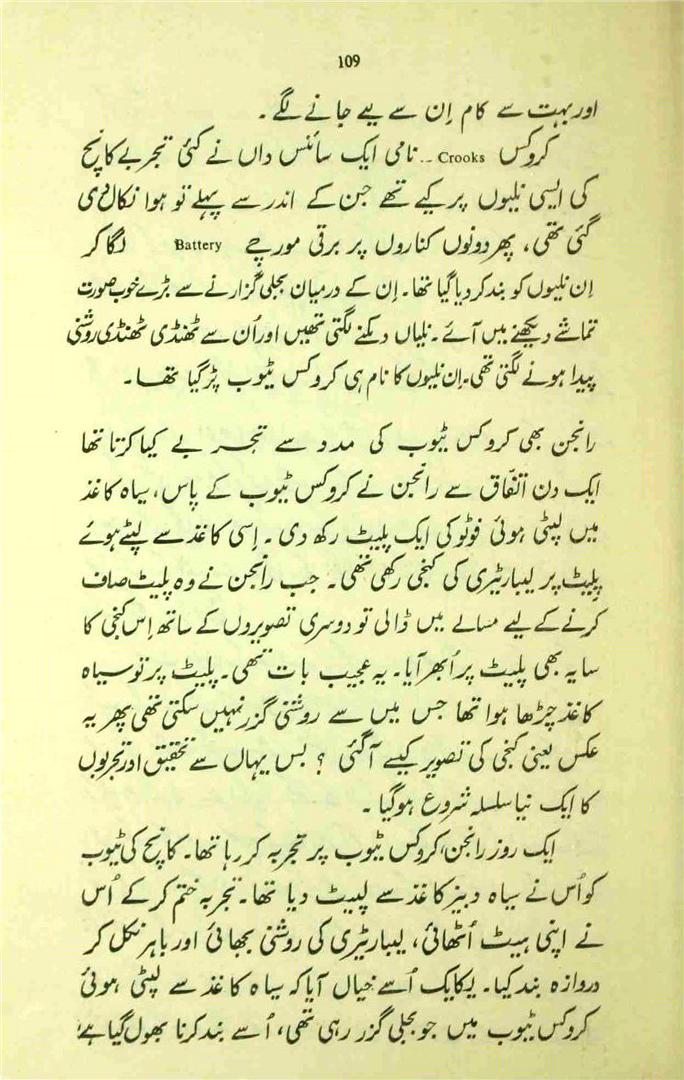 109
اور بہت سے کام اِن سے لیے جانے لگے ۔
کروکس Crooks -- نامی ایک سائنس داں نے کئی تجربے کانچ
کی ایسی نلیوں پر کیے تھے جن کے اندر سے پہلے تو ہوا نکال دی
گئی تھی، پھر دونوں کناروں پر برقی مورچے Battery لگا کر
اِن نلیوں کو بند کر دیا گیا تھا۔ اِن کے درمیان بجلی گزارنے سے بڑے خوب صورت
تماشے دیکھنے میں آئے۔ نلیاں دمکنے لگتی تھیں اور اُن سے ٹھنڈی ٹھنڈی روشنی
پیدا ہونے لگتی تھی۔ اِن نلیوں کا نام ہی کروکس ٹیوب پڑ گیا تھا۔
رانجن بھی کروکس ٹیوب کی مدد سے تجربے کیا کرتا تھا
ایک دن اتفّاق سے رانجن نے کروکس ٹیوب کے پاس، سیاہ کاغذ
میں لپٹی ہوئی فوٹو کی ایک پلیٹ رکھ دی ۔ اِسی کاغذ سے لپٹے ہوئے
پلیٹ پر لیبارٹیری کی کنجی رکھی تھی۔ جب رانجن نے وہ پلیٹ صاف
کرنے کے لیے مسالے میں ڈالی تو دوسری تصویروں کے ساتھ اِس کنجی کا
سایہ بھی پلیٹ پر اُبھر آیا۔ یہ عجیب بات تھی۔ پلیٹ پر تو سیاہ
کاغذ چڑھا ہوا تھا جس میں سے روشنی گزر نہیں سکتی تھی پھر یہ
عکس یعنی کنجی کی تصویر کیسے آگئی ؟ بس یہاں سے تحقیق اور تجربوں
کا ایک نیا سلسلہ شروع ہوگیا ۔
ایک روز رانجن کروکس ٹیوب پر تجربہ کر رہا تھا۔ کانچ کی ٹیوب
کو اُس نے سیاہ دبیز کاغذ سے لپیٹ دیا تھا۔ تجربہ ختم کر کے اُس
نے اپنی ہیٹ اُٹھائی، لیبارٹیری کی روشنی بجھائی اور باہر نکل کر
دروازہ بند کیا۔ یکایک اُسے خیال آیا کہ سیاہ کاغذ سے لپٹی ہوئی
کروکس ٹیوب میں جو بجلی گزر رہی تھی، اُسے بند کرنا بھول گیا ہے،